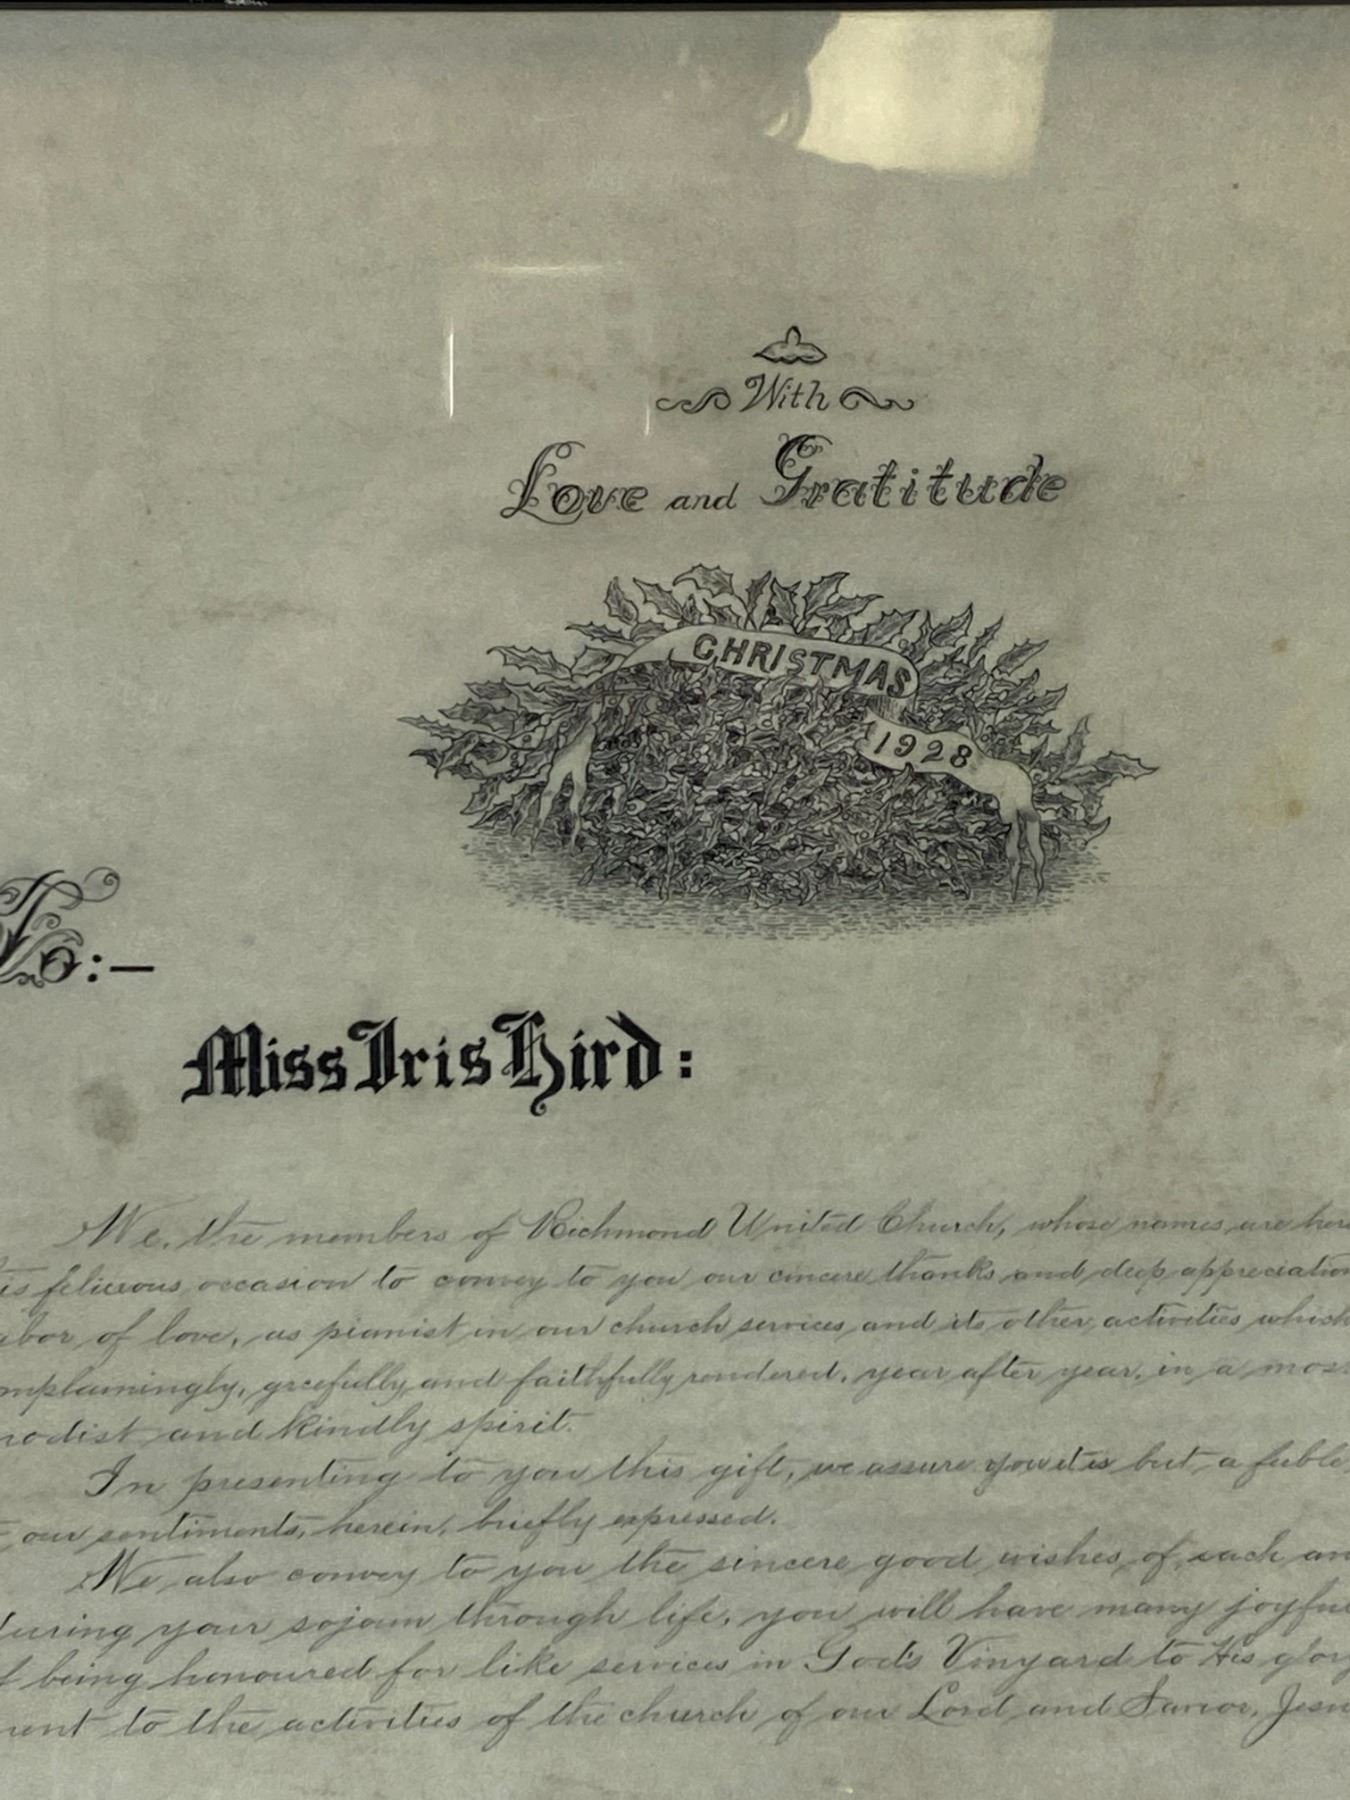 With
Love and Gratitude
CHRISTMAS
1928
To:—
Miss Iris Hird:
We, the members of Richmond United Church, whose names are here
is felicious occasion to convey to you our cincere thanks and deep appreciation
abor of love, as pianist in our church services and its other activities which
mplainingly, gracefully and faithfully rendered, year after year, in a most
odist and kindly spirit.
In presenting to you this gift, we assure you it is but a fuble
our sentiments, herein, briefly expressed.
We also convey to you the sincere good wishes, of each an
during your sojourn through life, you will have many joyfu
f being honoured for like services in God's Vinyard to His glory
ment to the activities of the church of our Lord and Savior, Jesu